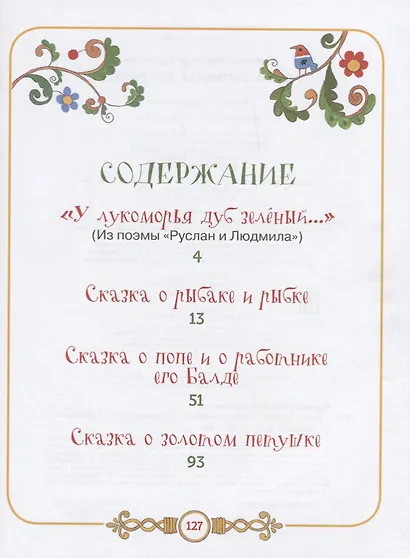 СОДЕРЖАНИЕ
«У лукоморья дуб зелёный...»
(Из поэмы «Руслан и Людмила»)
4
Сказка о рыбаке и рыбке
13
Сказка о попе и о работнике
его Балде
51
Сказка о золотом петушке
93
127